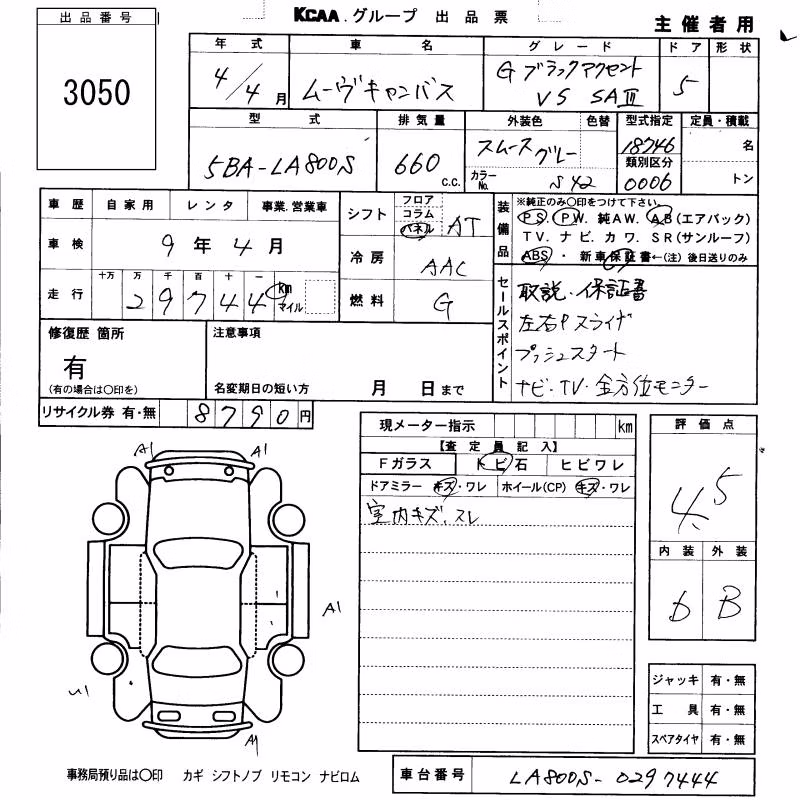 出品番号
3050
KCAA.グループ 出品票
主催者用
年式 車名 グレード ドア 形状
4/4月 ムーヴキャンバス Gブラックアクセント VS SAⅢ 5
型式 排気量 外装色 色替 型式指定 定員・積載
5BA-LA800S 660 c.c. スムースグレー 18746 名
カラーNo. S42 類別区分 0006 トン
車歴 自家用 レンタ 事業.営業車
車検 9年4月
走行 十万 万 千 百 十 一
29744 km マイル
シフト フロア コラム パネル AT
冷房 AAC
燃料 G
装備品
※純正のみ○印をつけて下さい。
PS. PW. 純AW. AB(エアバック)
TV. ナビ. カワ. SR(サンルーフ)
ABS・新車保証書←(注)後日送りのみ
セールスポイント
取説.保証書
左右Pスライド
プッシュスタート
ナビ・TV・全方位モニター
修復歴 箇所
有
(有の場合は○印を)
注意事項
名変期日の短い方 月 日まで
リサイクル券 有・無 8790円
現メーター指示 km
【査定員記入】
Fガラス トビ石 ヒビワレ
ドアミラー キズ・ワレ ホイール(CP) キズ・ワレ
室内キズ.スレ
評価点
4.5
内装 外装
B
A1 A1
A1
A1
ジャッキ 有・無
工具 有・無
スペアタイヤ 有・無
事務局預り品は○印 カギ シフトノブ リモコン ナビロム
車台番号 LA800S-0297444